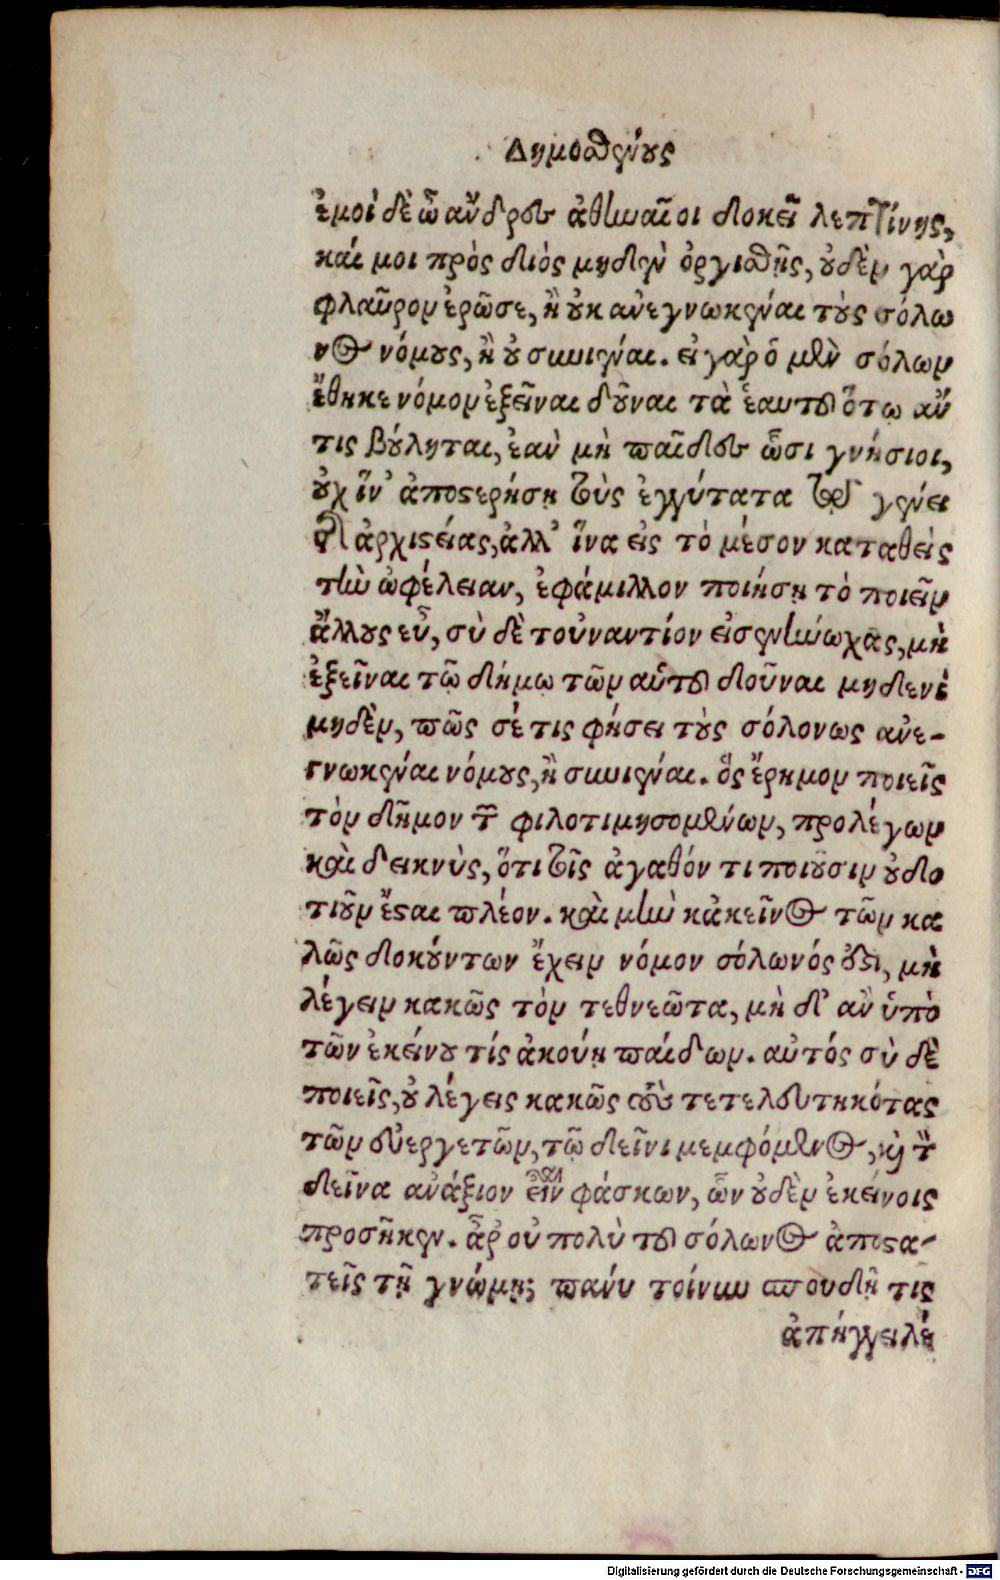 Δημοσθένους
ἐμοὶ δὲ ὦ ἄνδρες ἀθηναῖοι δοκεῖ λεπτίνης,
καί μοι πρὸς διὸς μηδὲν ὀργισθῇς, οὐδὲν γὰρ
φλαῦρον ἐρῶ σε, ἢ οὐκ ἀνεγνωκέναι τοὺς σόλω
νος νόμους, ἢ οὐ συνιέναι. εἰ γὰρ ὁ μὲν σόλων
ἔθηκε νόμον ἐξεῖναι δοῦναι τὰ ἑαυτοῦ ὅτῳ ἄν
τις βούληται, ἐὰν μὴ παῖδες ὦσι γνήσιοι,
οὐχ ἵν' ἀποστερήσῃ τοὺς ἐγγύτατα τῷ γένει
τῆς ἀρχιστείας, ἀλλ' ἵνα εἰς τὸ μέσον καταθεὶς
τὴν ὠφέλειαν, ἐφάμιλλον ποιήσῃ τὸ ποιεῖν
ἄλλους εὖ, σὺ δὲ τοὐναντίον εἰσενήνοχας, μὴ
ἐξεῖναι τῷ δήμῳ τῶν αὑτοῦ δοῦναι μηδενὶ
μηδὲν, πῶς σέ τις φήσει τοὺς σόλονως ἀνε-
γνωκέναι νόμους, ἢ συνιέναι. ὃς ἔρημον ποιεῖς
τὸν δῆμον τῶν φιλοτιμησομένων, προλέγων
καὶ δεικνὺς, ὅτι τοῖς ἀγαθόν τι ποιοῦσιν οὐδο
τιοῦν ἔσται πλέον. καὶ μὴν κἀκεῖνος τῶν κα
λῶς δοκούντων ἔχειν νόμον σόλωνός ἐστι, μὴ
λέγειν κακῶς τὸν τεθνεῶτα, μὴ δ' ἂν ὑπὸ
τῶν ἐκείνου τίς ἀκούῃ παίδων. αὐτός σὺ δὲ
ποιεῖς, οὐ λέγεις κακῶς τοὺς τετελευτηκότας
τῶν εὐεργετῶν, τῷ δεῖνι μεμφόμενος, καὶ τὸν
δεῖνα ἀνάξιον εἶναι φάσκων, ὧν οὐδὲν ἐκείνοις
προσῆκεν. ἆρ' οὐ πολὺ τοῦ σόλωνος ἀποστα-
τεῖς τῇ γνώμῃ; πάνυ τοίνυν σπουδῇ τις
ἀπήγγειλέ
Digitalisierung gefördert durch die Deutsche Forschungsgemeinschaft - DFG